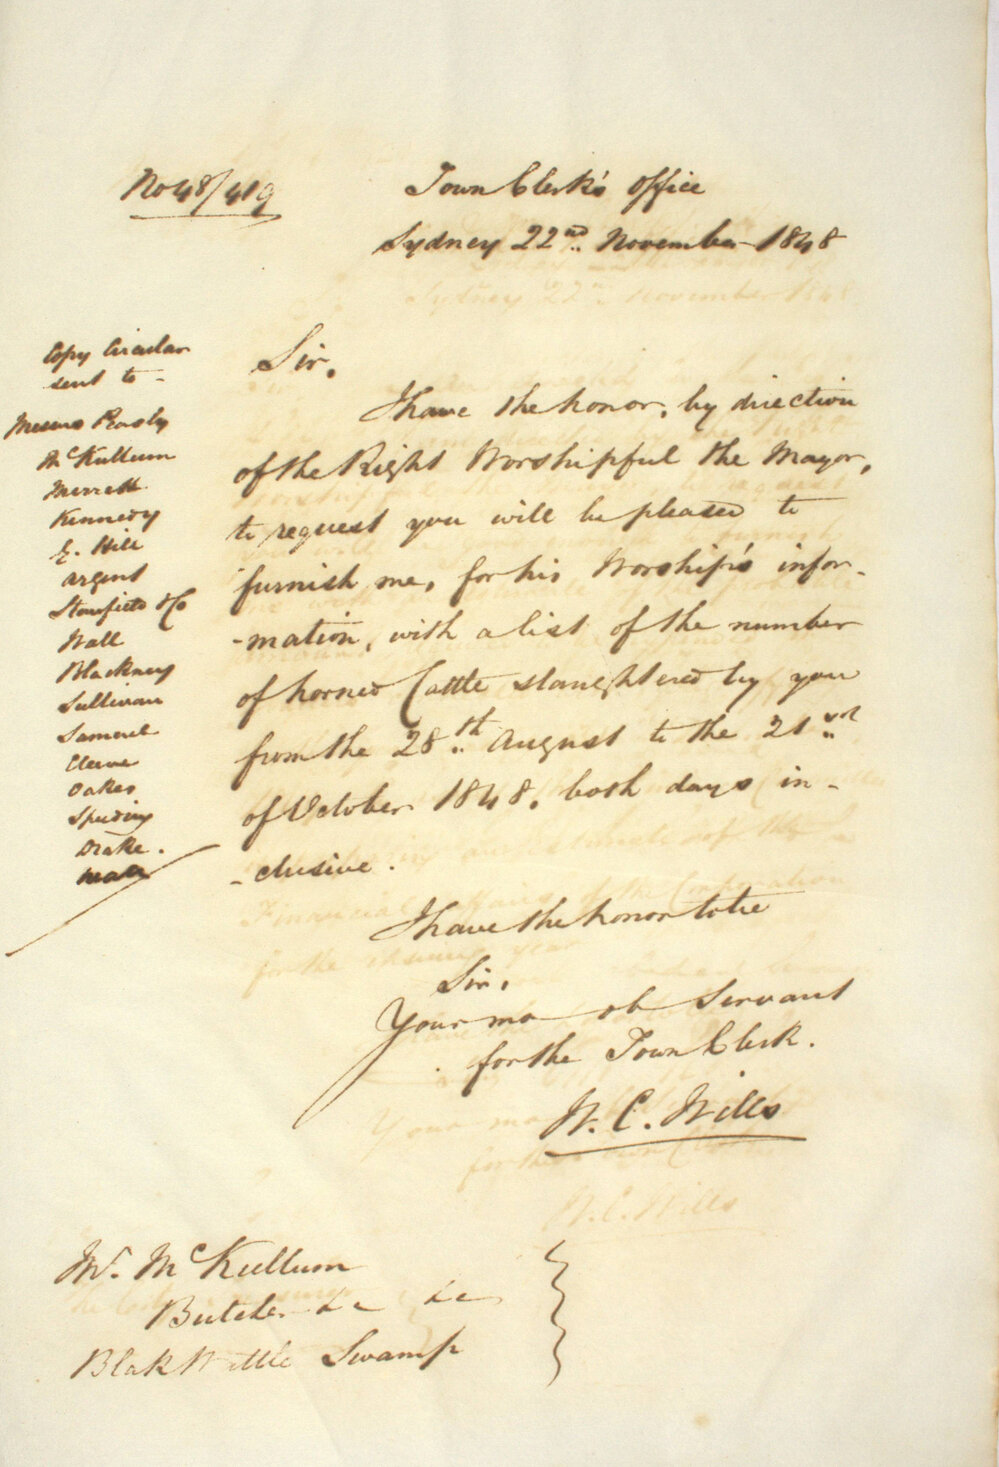 No 48/419
Town Clerk's Office
Sydney 22nd. November 1848
Copy Circular
sent to -
Messrs
McKullum
Merrett
Kennedy
E. Hill
Argent
Stanfield & Co
Wall
Blackney
Sullivan
Samuel
Oakes
Drake.
Sir,
I have the honor, by direction
of the Right Worshipful the Mayor,
to request you will be pleased to
furnish me, for his Worship's infor-
-mation, with a list of the number
of horned Cattle slaughtered by you
from the 28th August to the 21st
of October 1848, both days in-
-clusive.
I have the honor to be
Sir,
Your mo ob Servant
for the Town Clerk.
W. C. Wills
Mr. McKullum
Butcher &c &c
Blak Wattle Swamp